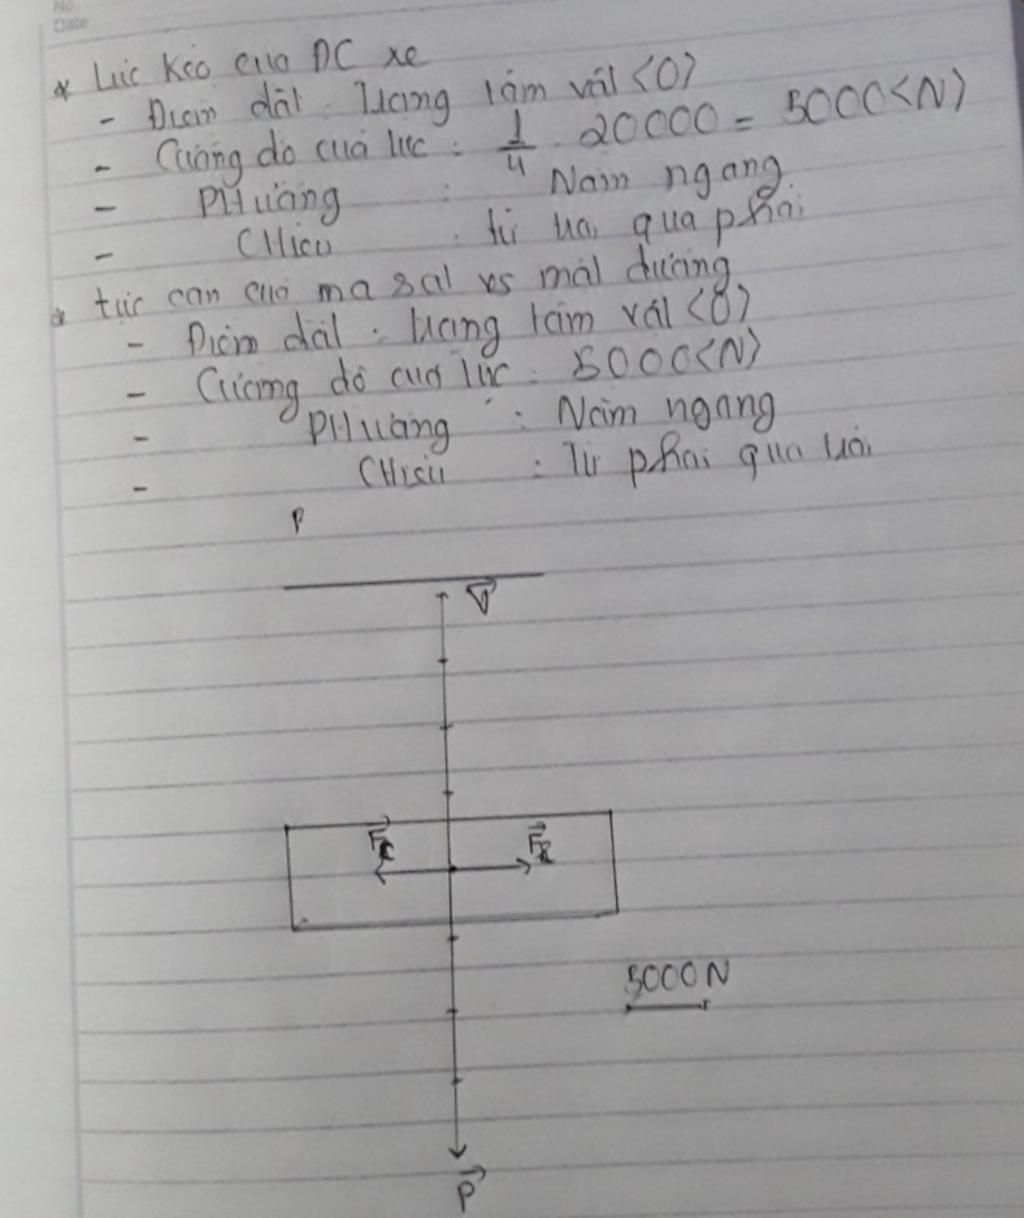 No.
Date
* Lực Kéo của DC xe
- Điểm đặt : trọng tâm vật <O>
- Cường độ của lực : 1/4 . 20000 = 5000<N>
- PHương : Nằm ngang
- CHiều : từ trái qua phải
* Lực cản của ma sát vs mặt đường
- Điểm đặt : trọng tâm vật <O>
- Cường độ của lực : 5000<N>
- PHương : Nằm ngang
- CHiều : Từ phải qua trái
P
F⃗c F⃗k
5000N
P⃗